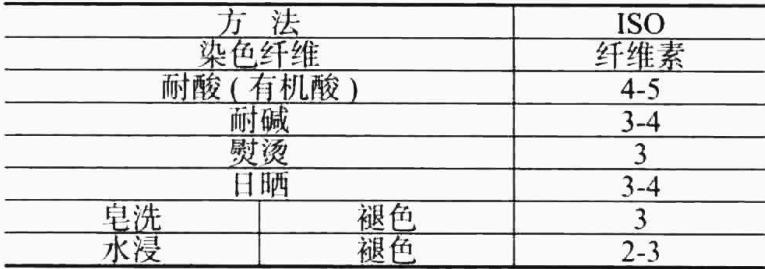 方 法 ISO
染色纤维 纤维素
耐酸(有机酸) 4-5
耐碱 3-4
熨烫 3
日晒 3-4
皂洗 褪色 3
水浸 褪色 2-3